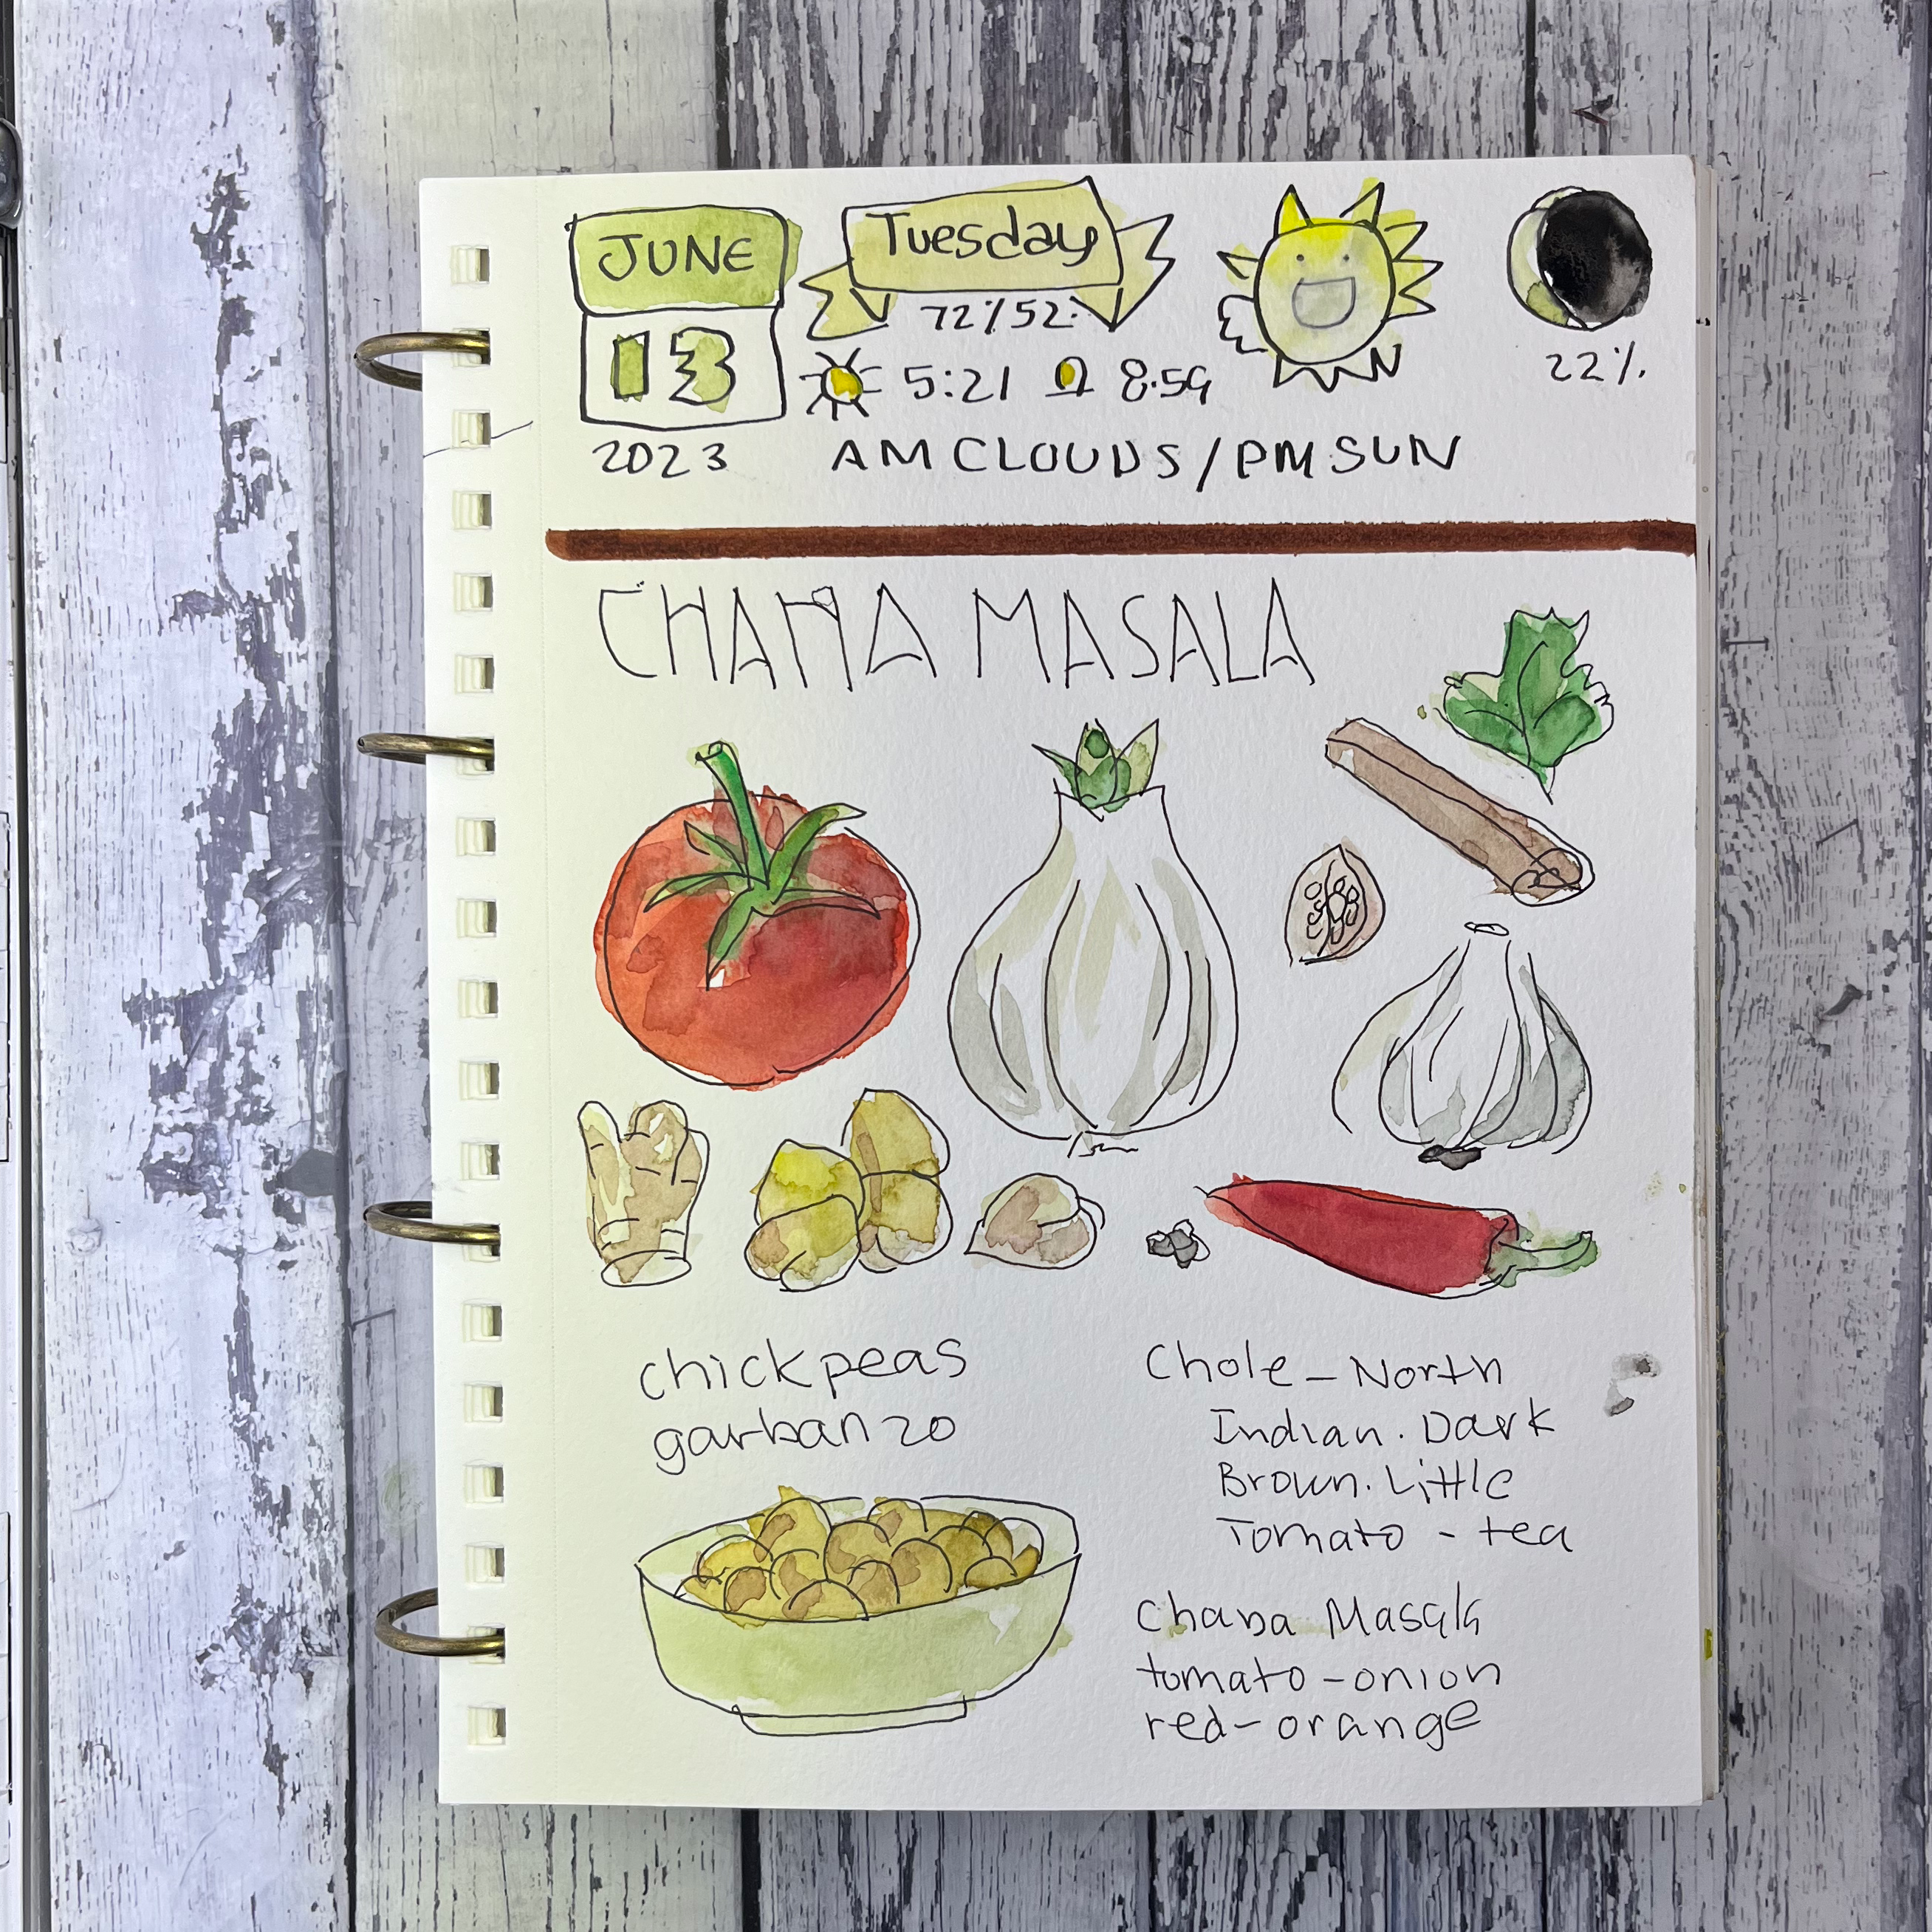 JUNE
13
2023
Tuesday
72/52
5:21 8:59
AM CLOUDS/PM SUN
22%
CHANA MASALA
chickpeas
garbanzo
Chole - North
Indian. Dark
Brown. Little
Tomato - tea
Chana Masala
tomato-onion
red-orange